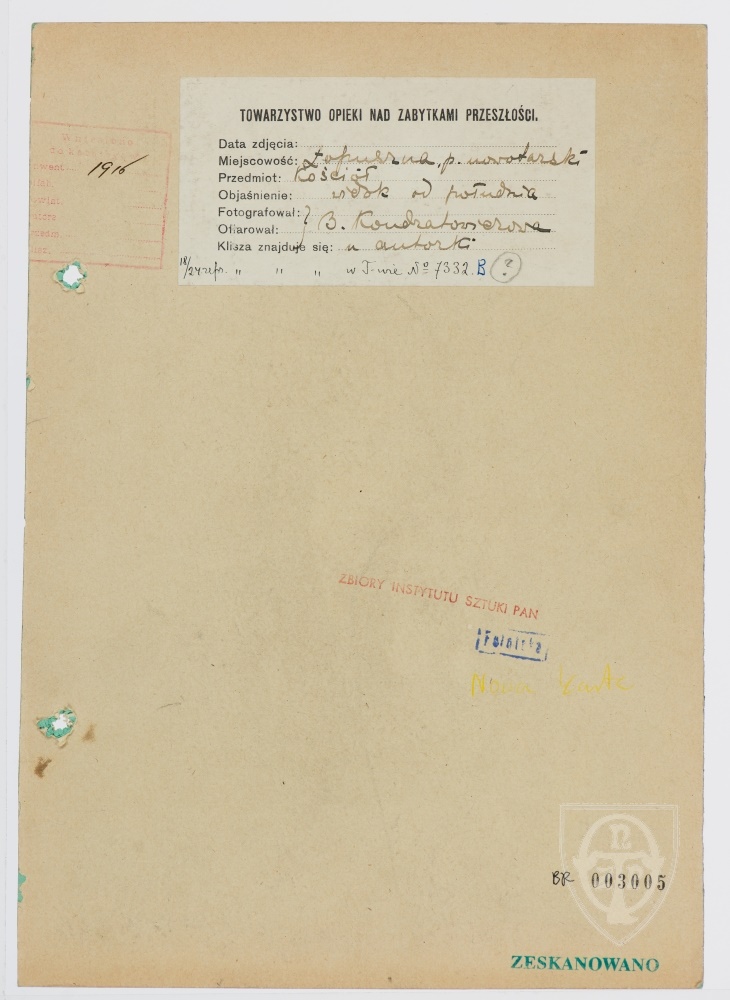 TOWARZYSTWO OPIEKI NAD ZABYTKAMI PRZESZŁOŚCI.
Data zdjęcia:
Miejscowość: Łopuszna, p. nowotarski
Przedmiot: Kościół
Objaśnienie: widok od południa
Fotografował:
Ofiarował: } B. Kondratowiczowa
Klisza znajduje się: u autorki
18/24 refr. " " " w T-wie № 7332. B ?
1916
ZBIORY INSTYTUTU SZTUKI PAN
BR 003005
ZESKANOWANO